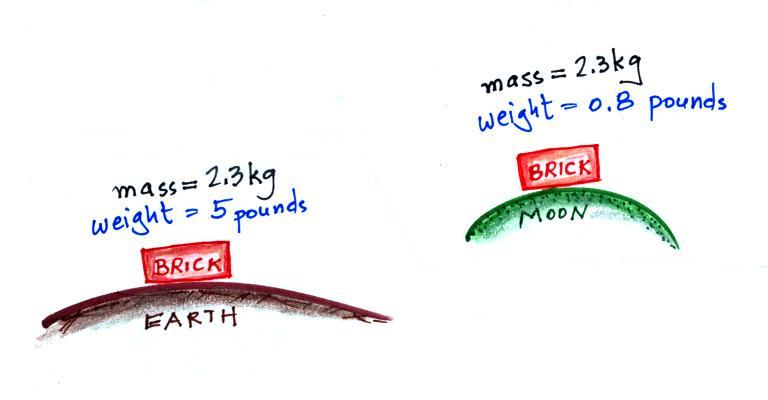 mass = 2.3kg
weight = 5 pounds
BRICK
EARTH
mass = 2.3kg
weight = 0.8 pounds
BRICK
MOON